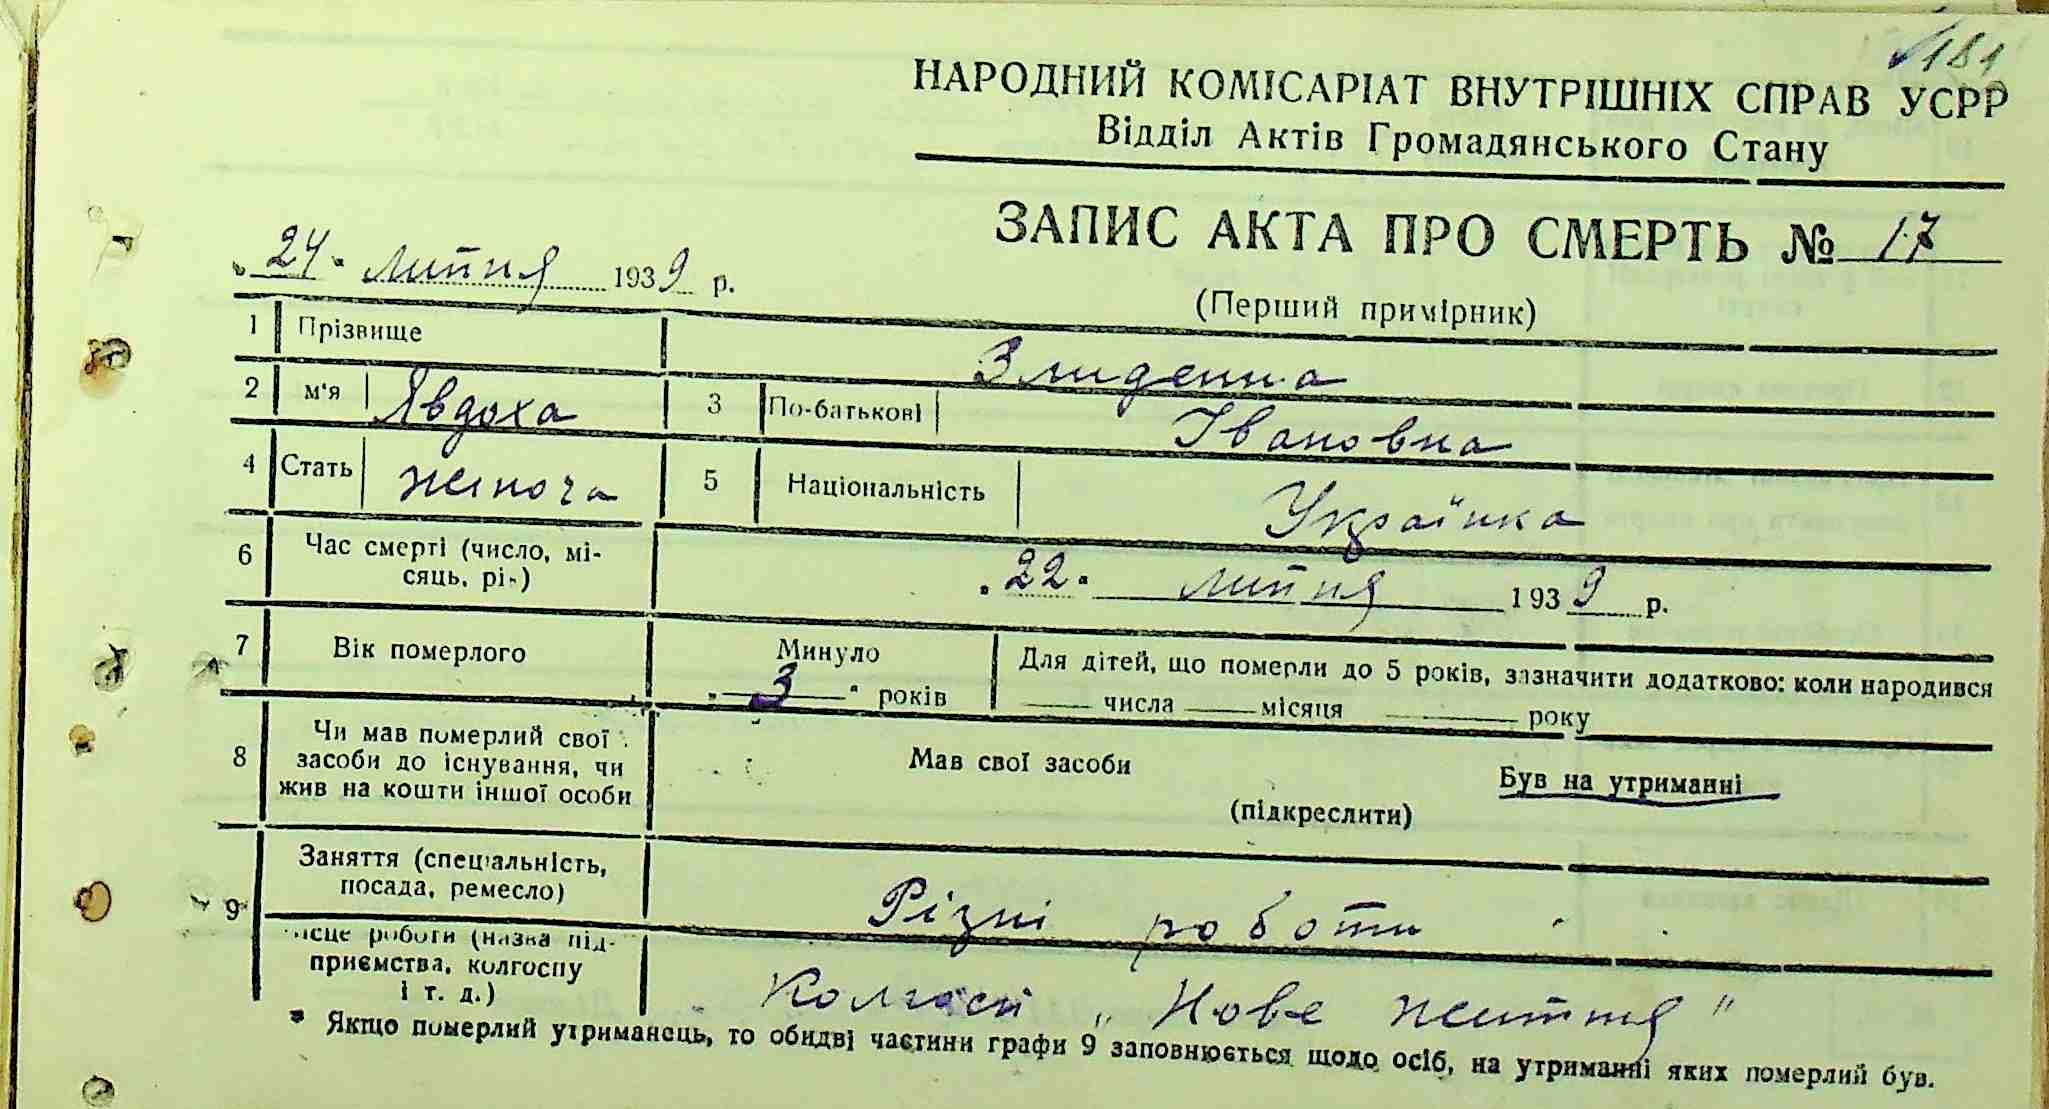 181
НАРОДНИЙ КОМІСАРІАТ ВНУТРІШНІХ СПРАВ УСРР
Відділ Актів Громадянського Стану
ЗАПИС АКТА ПРО СМЕРТЬ № 17
(Перший примірник)
„24“ липня 1939 р.
1 Прізвище Злиденна
2 м'я Явдоха 3 По-батькові Івановна
4 Стать жіноча 5 Національність Українка
6 Час смерті (число, мі-
сяць, рік) „22“ липня 1939 р.
7 Вік померлого Минуло „3“ років
Для дітей, що померли до 5 років, зазначити додатково: коли народився
числа місяця року
8 Чи мав померлий свої
засоби до існування, чи
жив на кошти іншої особи
Мав свої засоби Був на утриманні
(підкреслити)
9 Заняття (спеціальність,
посада, ремесло) Різні роботи
ісце роботи (назва під-
приємства, колгоспу
і т. д.) Колгосп „Нове життя"
* Якщо померлий утриманець, то обидві частини графи 9 заповнюється щодо осіб, на утриманні яких померлий був.